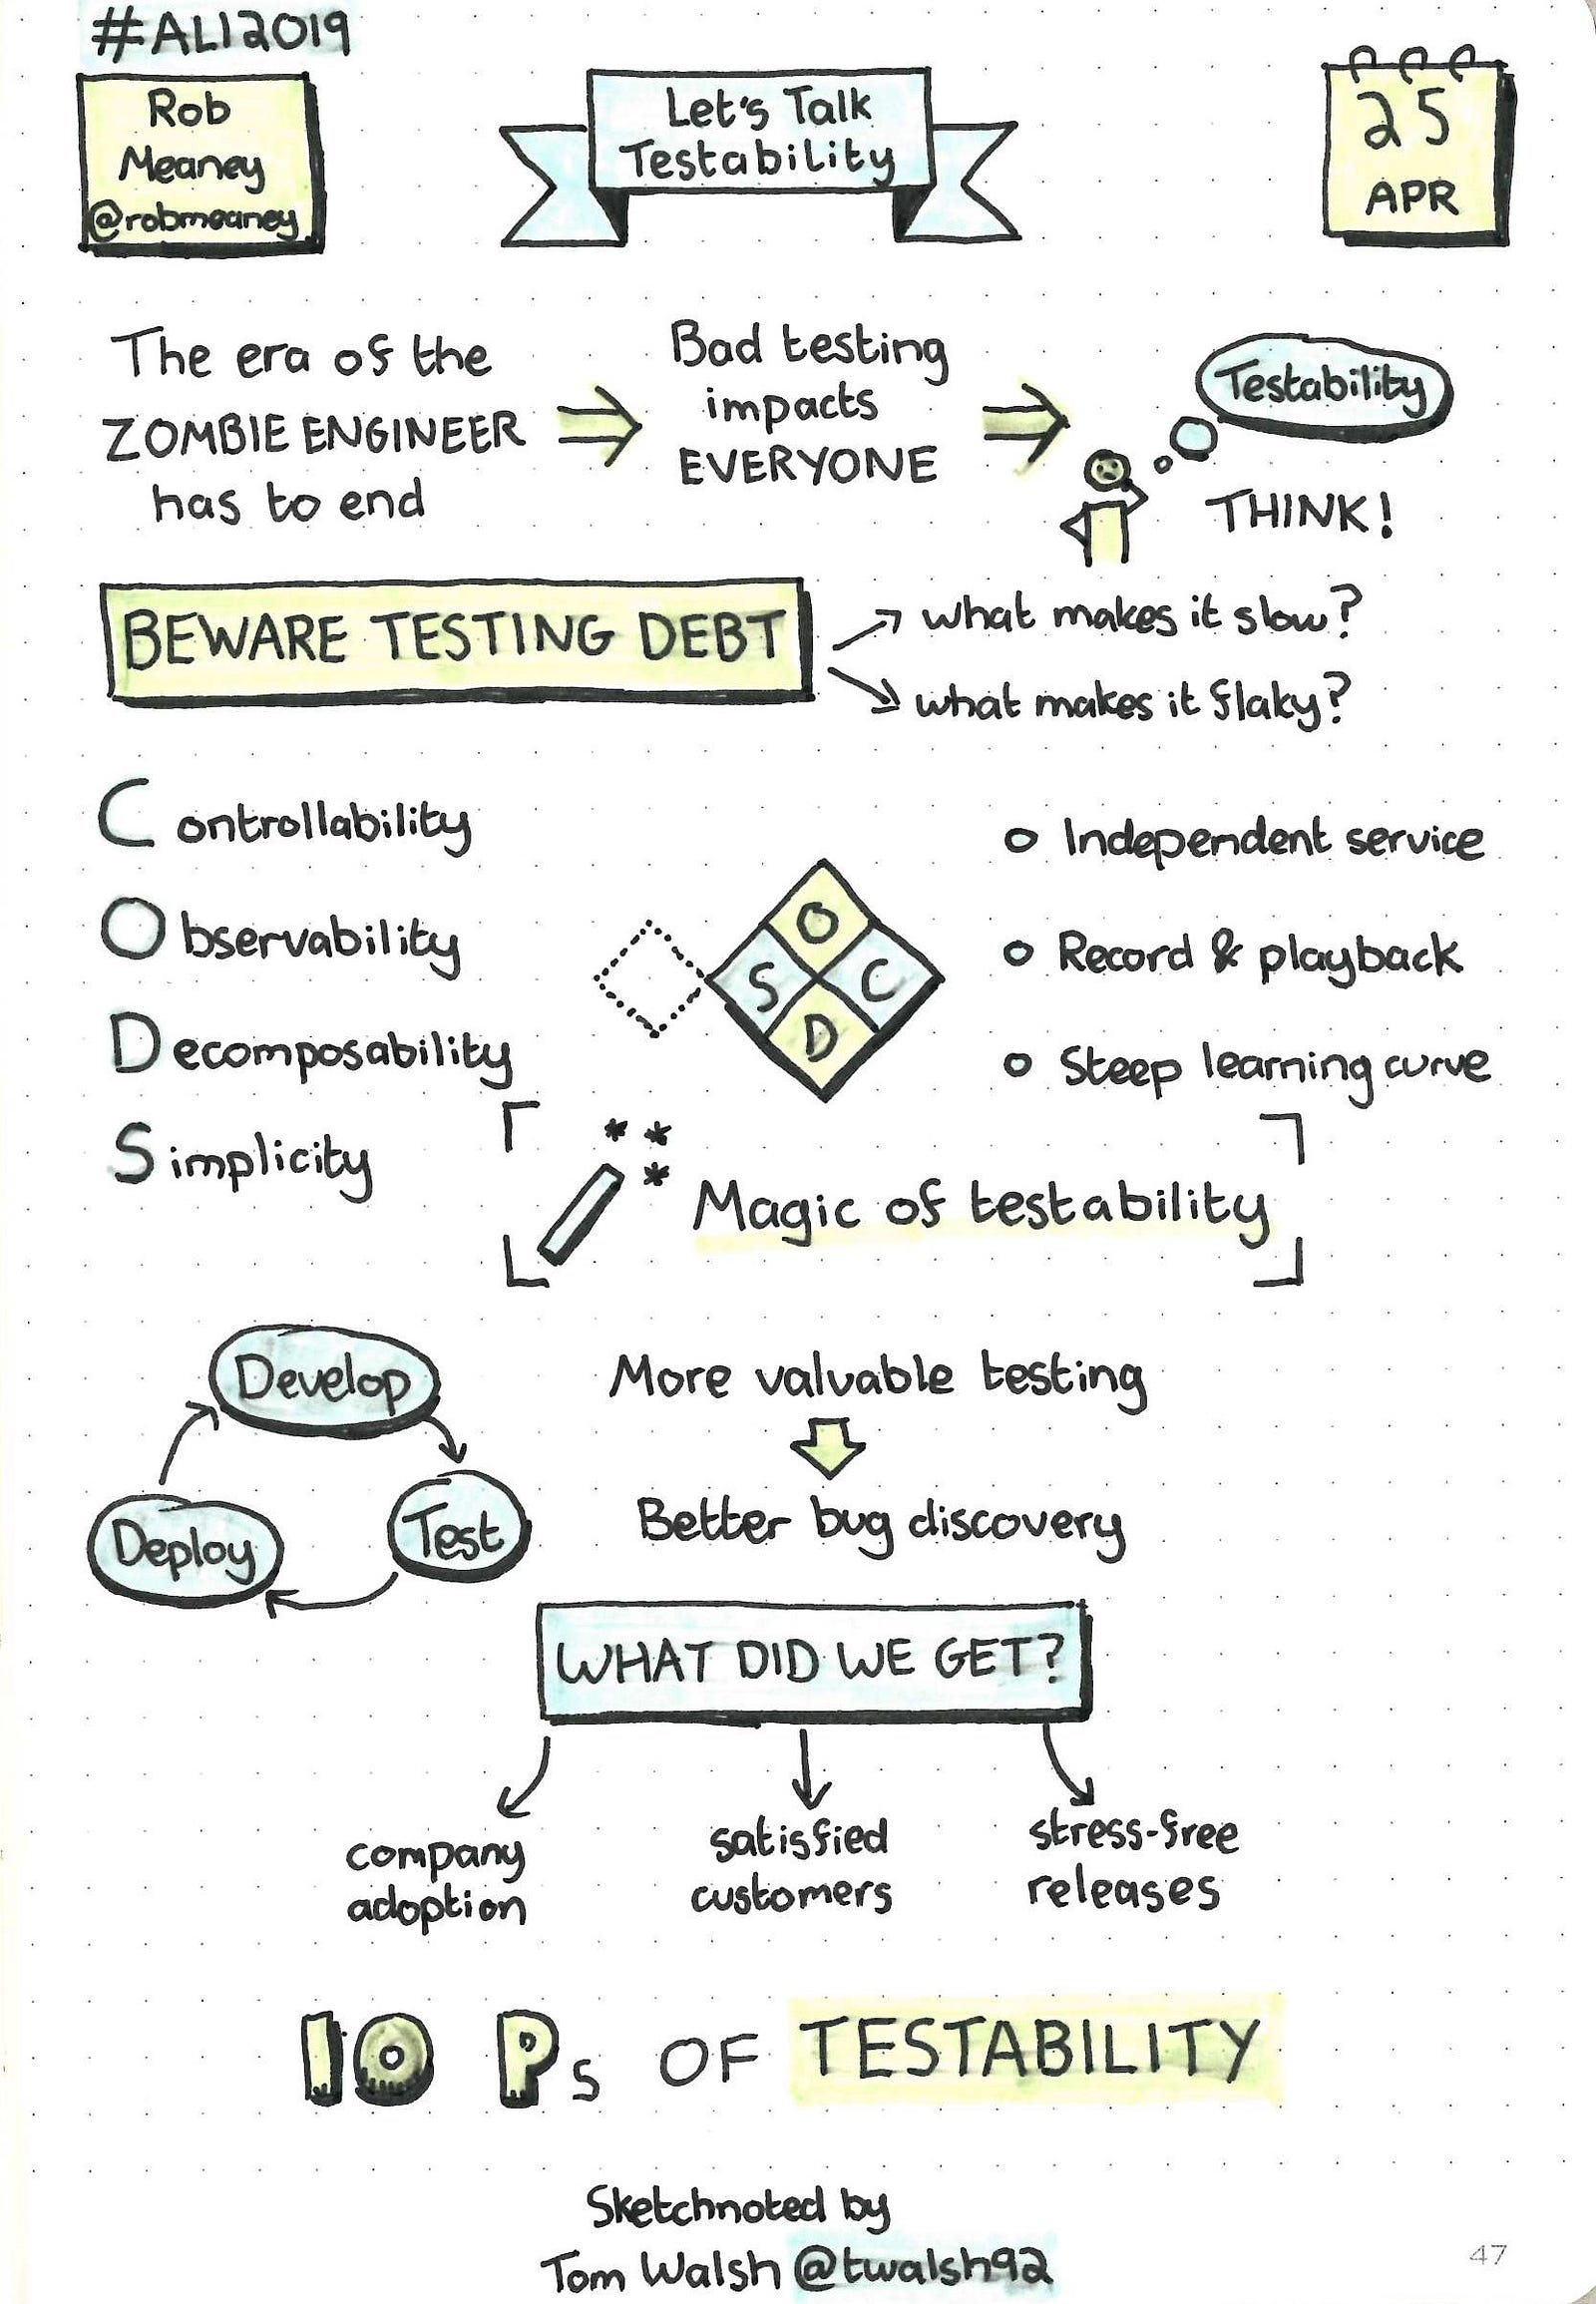 #ALI2019
Rob
Meaney
@robmeaney
Let's Talk
Testability
25
APR
The era of the
ZOMBIE ENGINEER
has to end
Bad testing
impacts
EVERYONE
Testability
THINK!
BEWARE TESTING DEBT
what makes it slow?
what makes it flaky?
Controllability
Observability
Decomposability
Simplicity
O
S C
D
Independent service
Record & playback
Steep learning curve
Magic of testability
Develop
Test
Deploy
More valuable testing
Better bug discovery
WHAT DID WE GET?
company
adoption
satisfied
customers
stress-free
releases
10 Ps OF TESTABILITY
Sketchnoted by
Tom Walsh @twalsh92
47